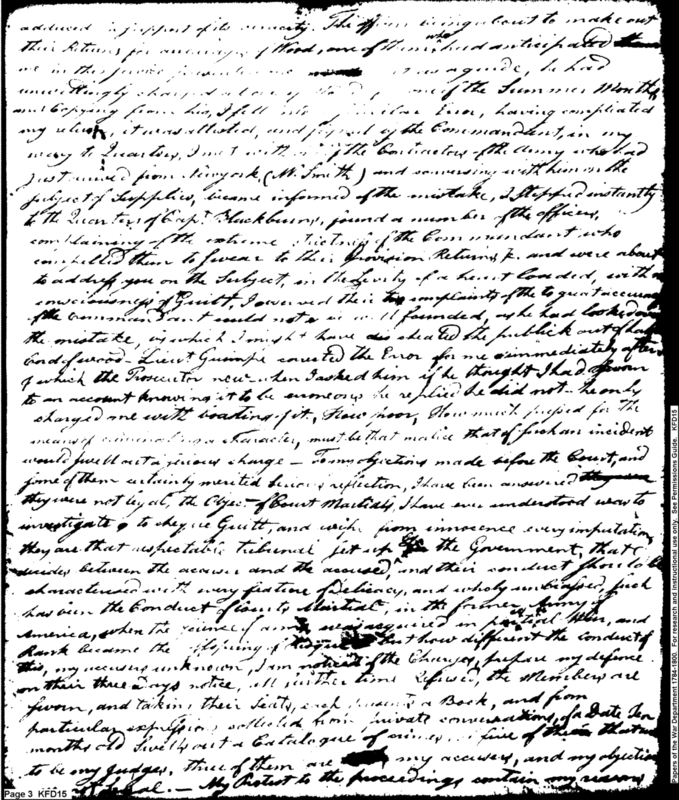 adduced in support of its veracity. The officers being about to make out
their Returns for an of Wood, one of them who had anticipated
me in the me as a guide, he had
unwittingly charged a of the Summer Months,
and Copying from his, I fell into a similar Error, having completed
my return, it was attested, and signed by the Commandant, in my
way to Quarters, I met with one of the Contractors of the Army who had
Just arrived from Newyork (Mr. Smith) and conversing with him on the
subject of Supplies, became informed of the mistake, I Stepped instantly
to the Quarters of Capt. Blackburns, found a number of the officers,
complaining of the extreme strictness of the Commandant who
compelled them to swear to their Provision Returns &c. and were about
to address you on the Subject, in the Levity of a heart loaded, with a
consciousness of Guilt, I averred their complaints of the to great accuracy
of the Commandant could not be well founded, as he had looked over
the mistake, in which I might have cheated the publick out of half
Cord of wood - Lieut Guimpe corrected the Error for me immediately after
of which the Prosecutor new when I asked him if he thought I had sworn
to an account knowing it to be erroneous he replied he did not - he only
charged me with boasting of it, How poor, How much pressed for The
means of criminating a Character, must be that malice that of such an incident
would swell out a serious charge - To my objections made before the Court, and
some of them certainly merited Serious reflection, I have been answered they were
they were not legal, the Object of Court Martials, I have ever understood was to
investigate to Guilt and wipe from innocence every imputation,
they are that respectable tribunal set up by the Government, that
decides between the accuser and the accused, and their conduct should be
characterised with every feature of Delicacy, and wholy unbiassed, such
has been the Conduct of Courts Martial, in the former Army of
America, when the science of arms was acquired in and
Rank became the offspring of But how different the conduct of
this, my accusers unknown, I am noticed of the Charges, prepare my defence
on their three Days notice, all further time refused, the Members are
sworn, and taking their Seats, each presents a Book, and from
particular expressions collected from private conversations, of a Date Ten
months old Swells out a Catalogue of crimes, five of them that
to be my Judges, three of them are my accusers, and my objection
legal. - My Protest to the proceedings contain my reasons
Page 3 KFD15
Papers of the War Department 1784-1800. For research and instructional use only. See Permissions Guide. KFD15